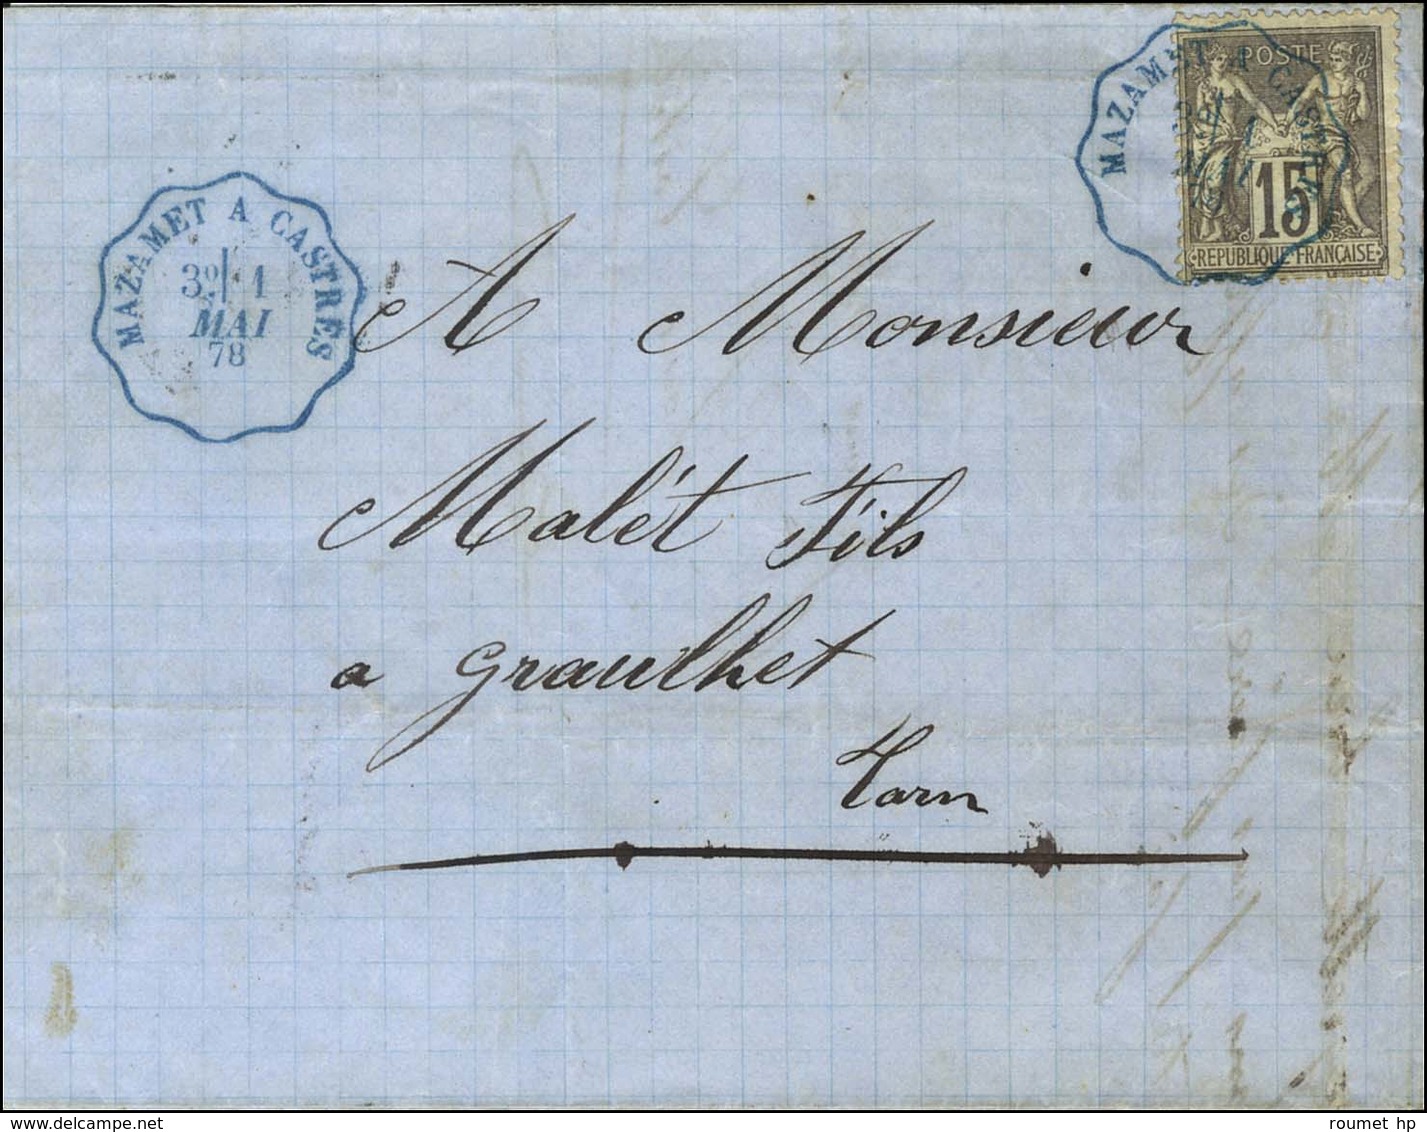 MAZAMET A CASTRES
3º 1
MAI
78
MAZAMET A CASTRES
POSTE
15
REPUBLIQUE FRANÇAISE
A Monsieur
Malet Fils
a Graulhet
Tarn
www.delcampe.net
roumet hp